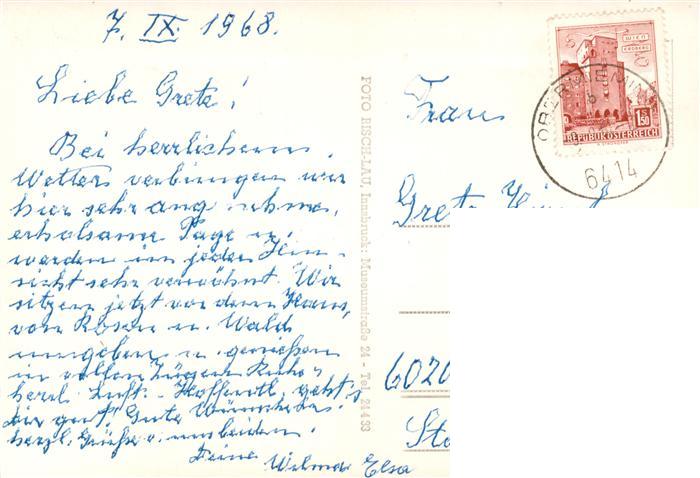 7. IX. 1968.
Liebe Grete!
Bei herrlichem
Wetter verbringen wir
hier sehr angenehme,
erholsame Tage u.
werden in jeder Hin-
sicht sehr verwöhnt. Wir
sitzen jetzt vor dem Haus,
von Rosen u. Wald
umgeben u. genießen
in vollen Zügen Ruhe
herrl. Luft. Hoffentl. geht's
Dir gut! Gute Wünsche u.
herzl. Grüße v. uns beiden.
Deine
Wilma Elsa
FOTO RISCH-LAU, Innsbruck, Museumstraße 24 - Tel. 24433
Frau
Grete
6020
WIEN
ERDBERG
1.50
REPUBLIK ÖSTERREICH
OBERMIEMING
6414